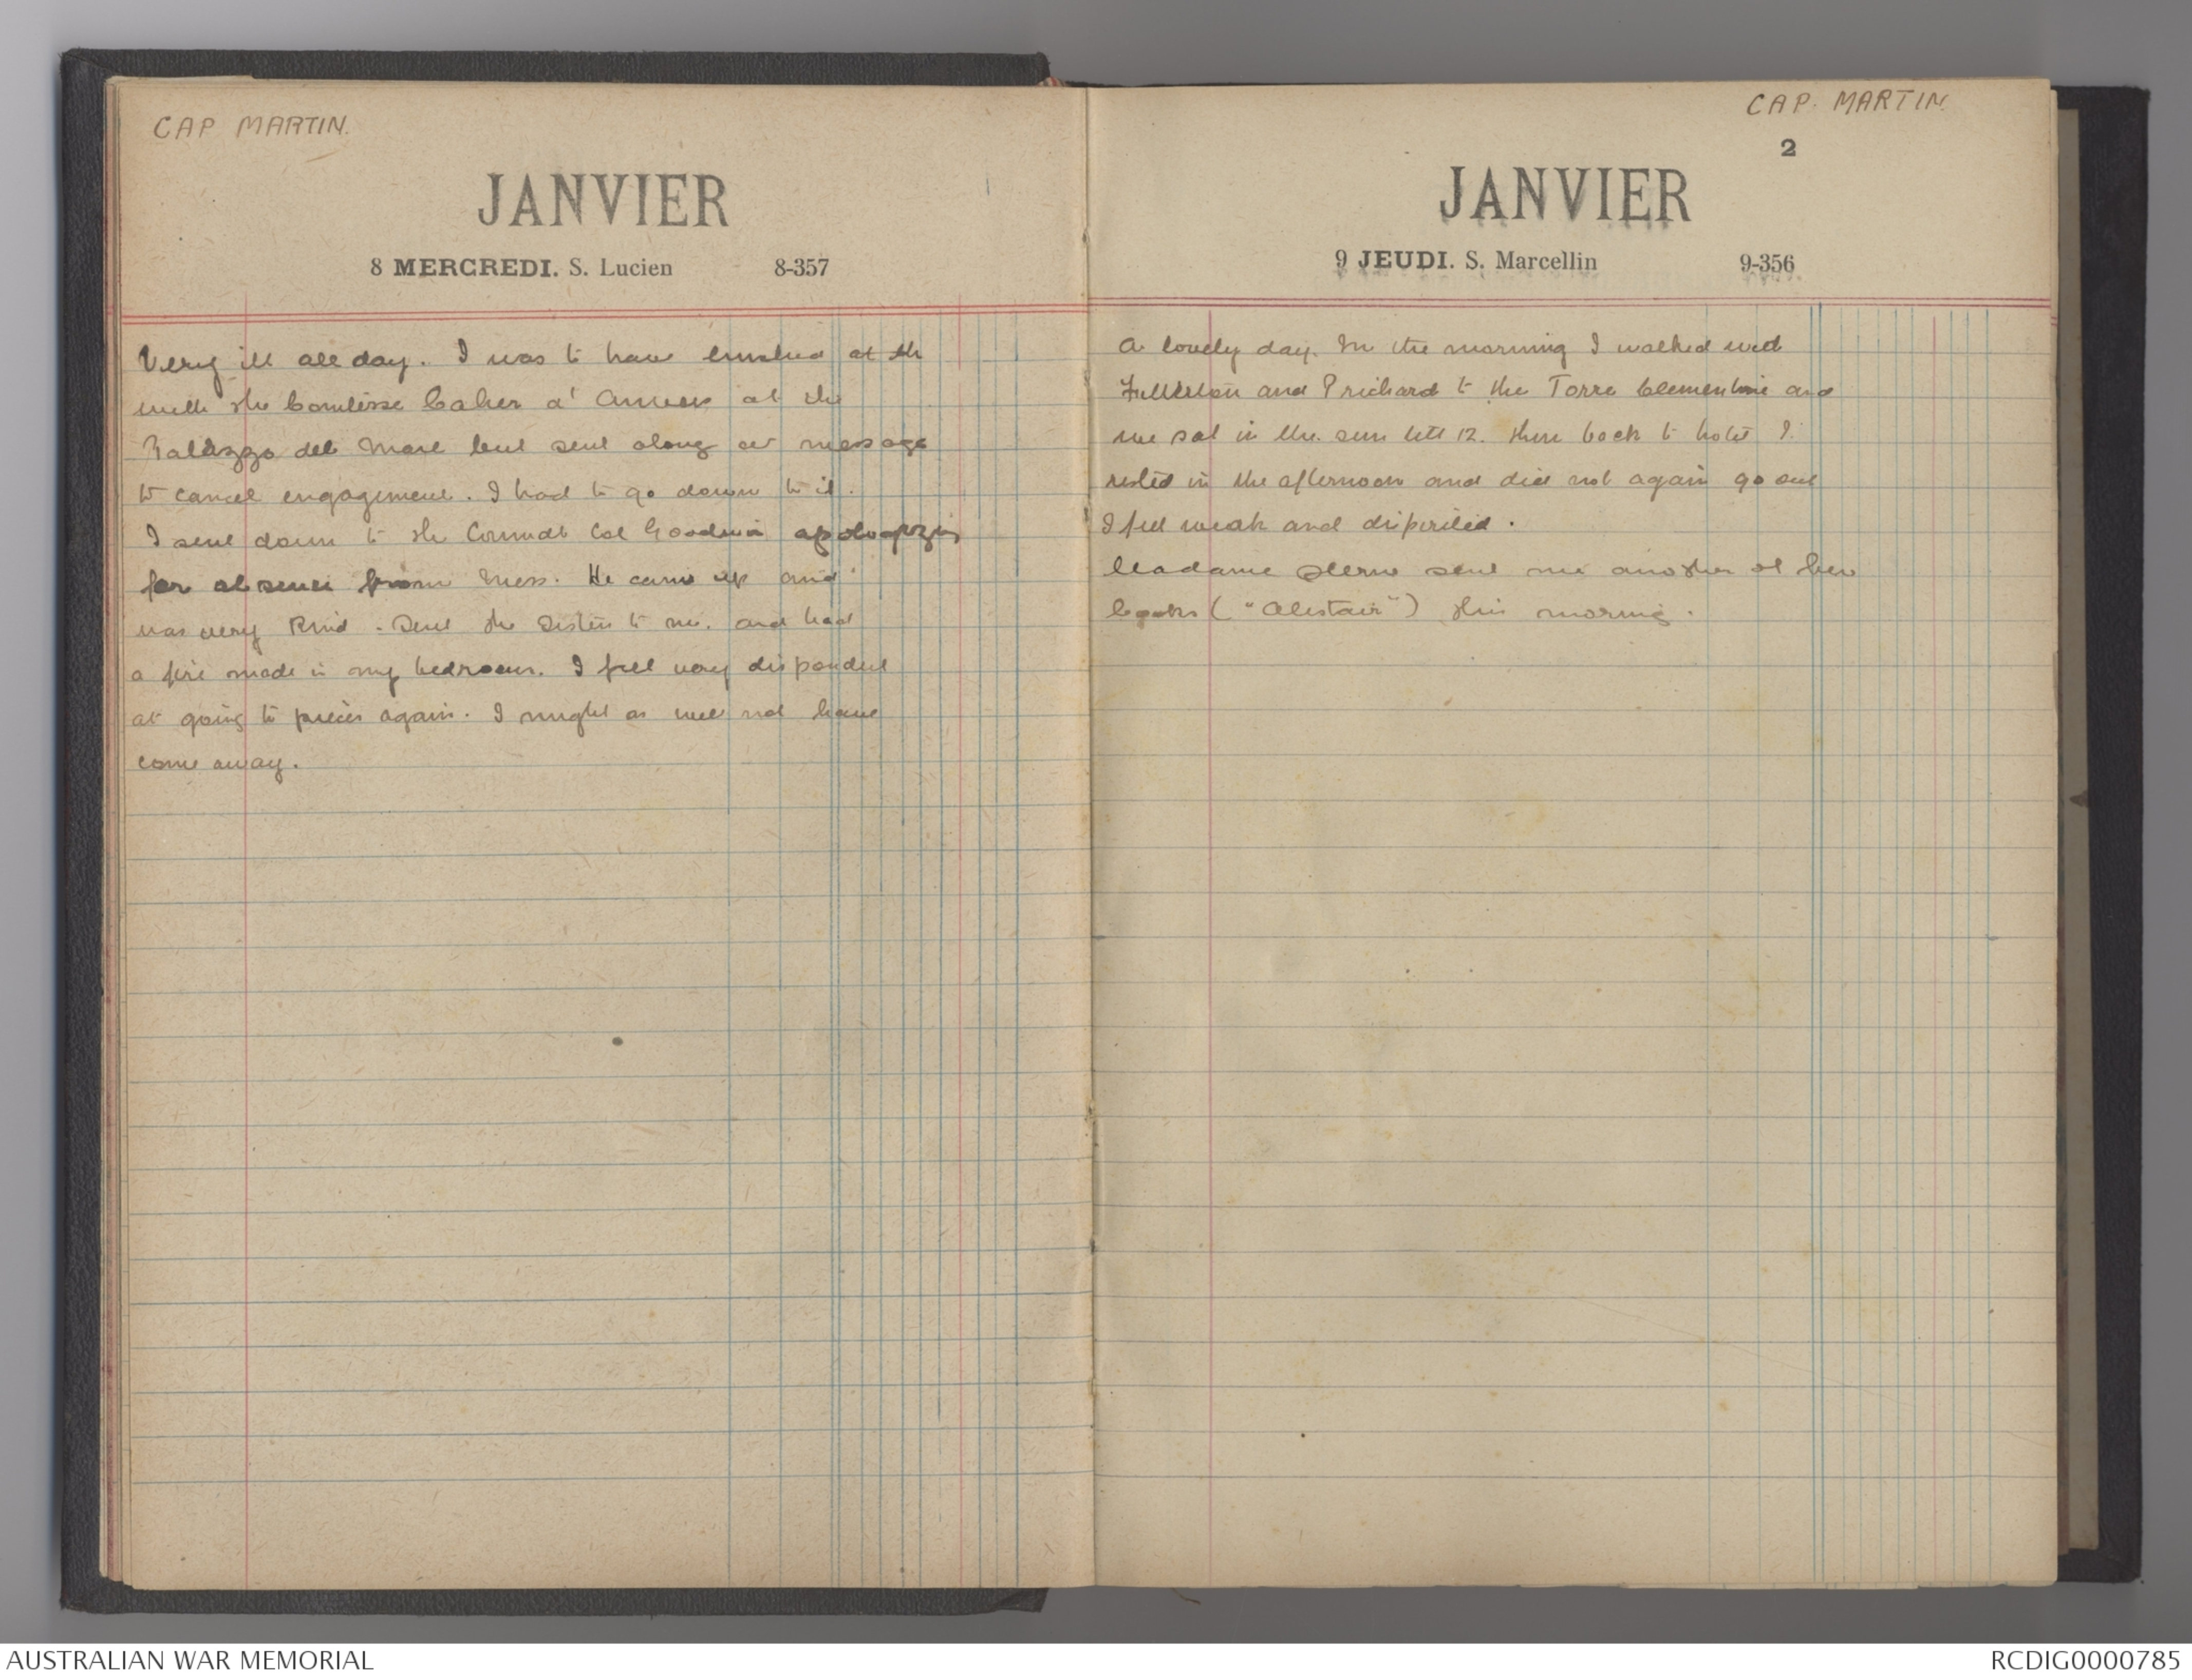 CAP MARTIN.
JANVIER
8 MERCREDI. S. Lucien 8-357
Very ill all day. I was to have lunched at the
with the Comtesse Caher d' at the
Palazzo del Mare but sent along a message
to cancel engagement. I had to go down to it.
I sent down to the Commdt Col Goodwin apologizing
for absence from Mess. He came up and
was very kind. Sent the Sister to me. and had
a fire made in my bedroom. I feel very despondent
at going to pieces again. I might as well not have
come away.
CAP. MARTIN.
2
JANVIER
9 JEUDI. S. Marcellin 9-356
A lovely day. In the morning I walked with
Fullerton and Prichard to the Torre Clementine and
we sat in the sun till 12. then back to hotel I
rested in the afternoon and did not again go out
I feel weak and dispirited.
Madame Sterne sent me another of her
books ("Alistair") this morning.
AUSTRALIAN WAR MEMORIAL
RCDIG0000785